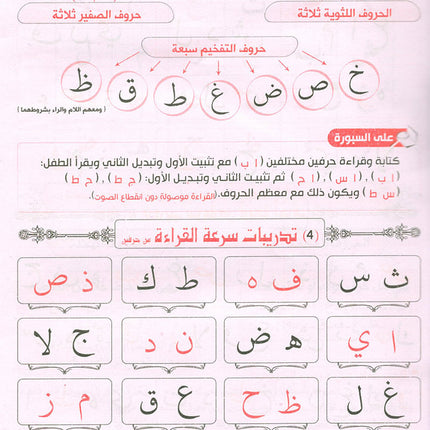 الحروف اللثوية ثلاثة حروف الصفير ثلاثة
حروف التفخيم سبعة
خ ص ض غ ط ق ظ
( ومعهم اللام والراء بشروطهما )
على السبورة
كتابة وقراءة حرفين مختلفين ( ا ب ) مع تثبيت الأول وتبديل الثاني ويقرأ الطفل:
( ا ب ) , ( ا س ) , ( ا ح ) ثم تثبيت الثاني وتبديل الأول: ( ج ط ) , ( ح ط )
( س ط ) ويكون ذلك مع معظم الحروف. (القراءة موصولة دون انقطاع الصوت).
(4) تدريبات سرعة القراءة عن حرفين
ث س ف ه ط ك ذ ص
ا ي ه ض ن د ج لا
غ ل ظ ح ع ق م ز